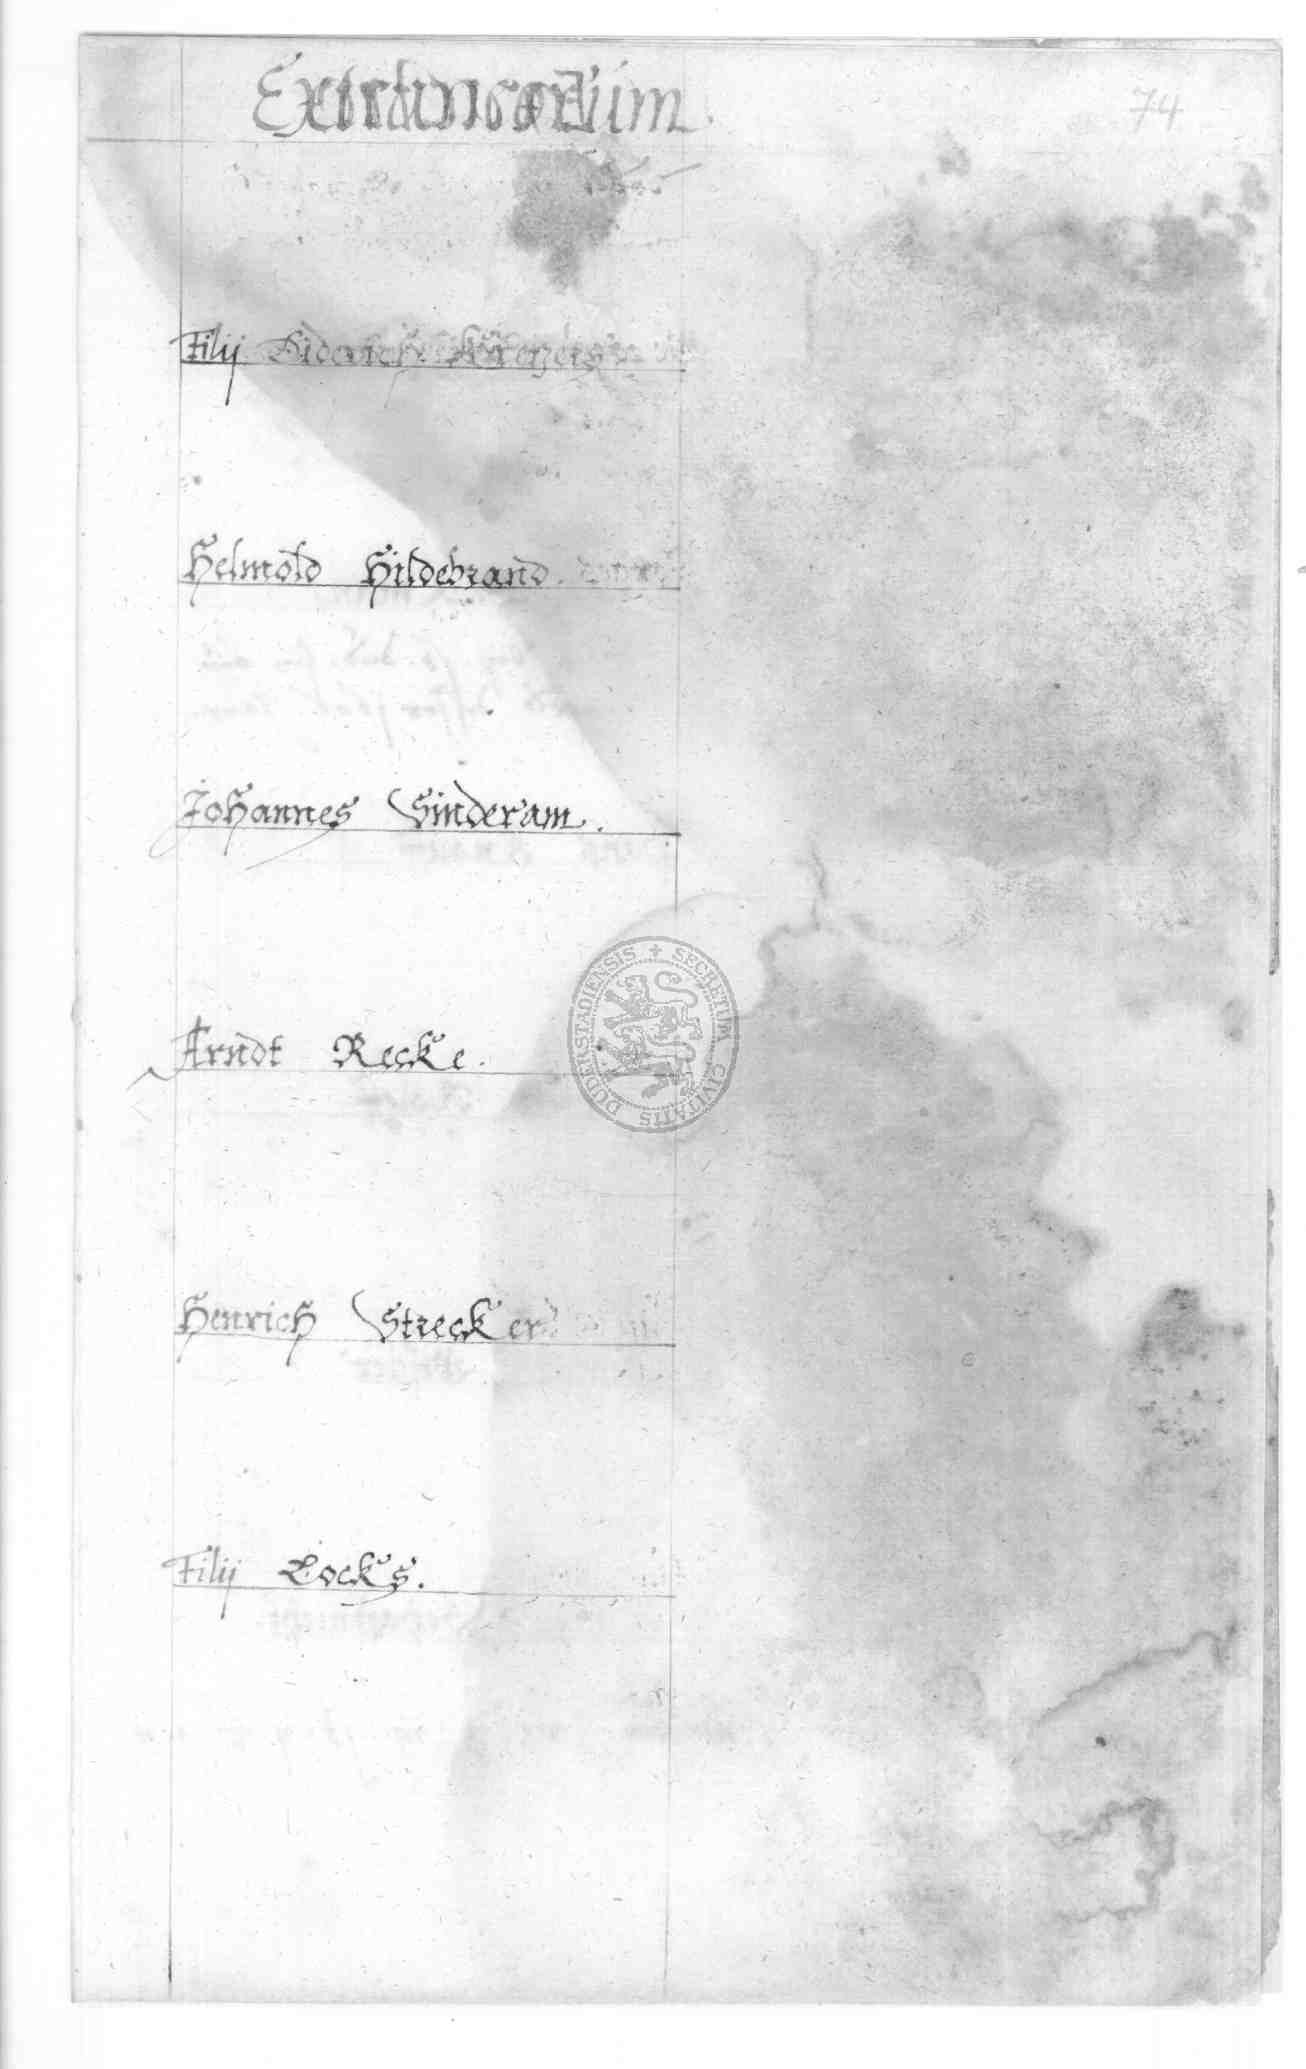 Extraneorum
74
Filij Diderich
Helmold Hildebrand.
Johannes Sinderam.
Arndt Recke.
Henrich Strecker
SECRETUM CIVITATIS DUDERSTADIENSIS
Filij Locks.